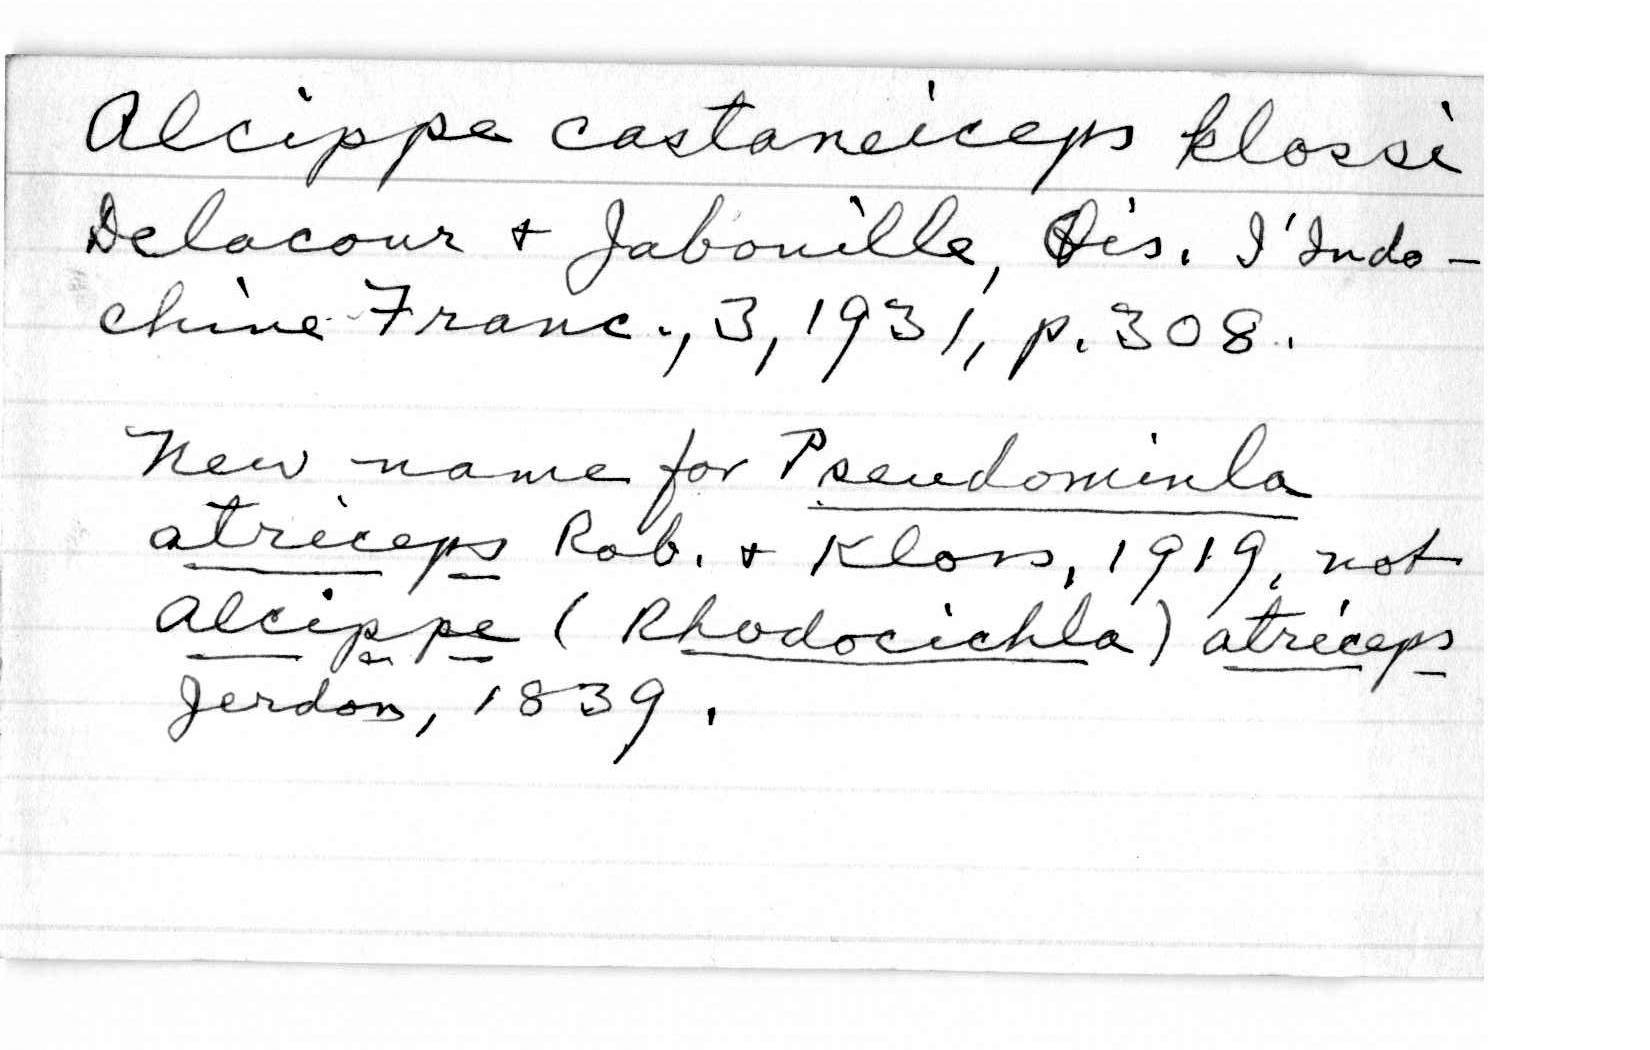 Alcippe castaneiceps klossi
Delacour + Jabouille, Ois. I'Indo-
chine Franc., 3, 1931, p. 308.
New name for Pseudominla
atriceps Rob. + Kloss, 1919, not
Alcippe (Rhodocichla) atriceps
Jerdon, 1839.